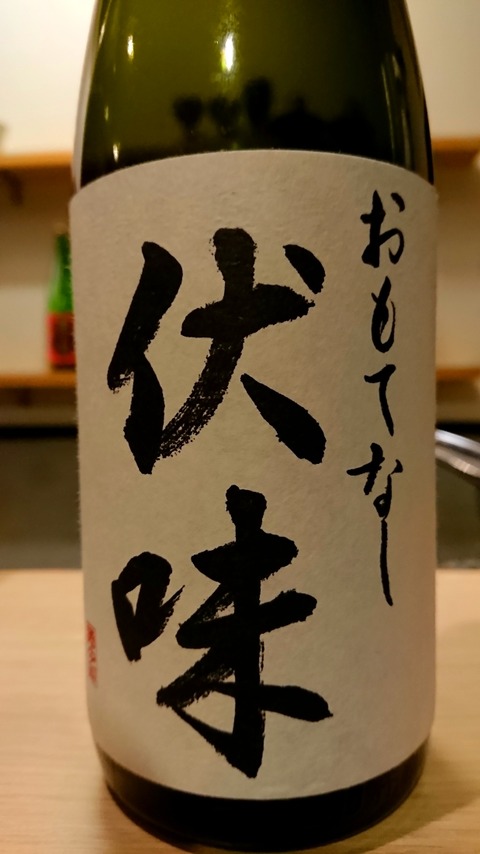 おもてなし
伏味